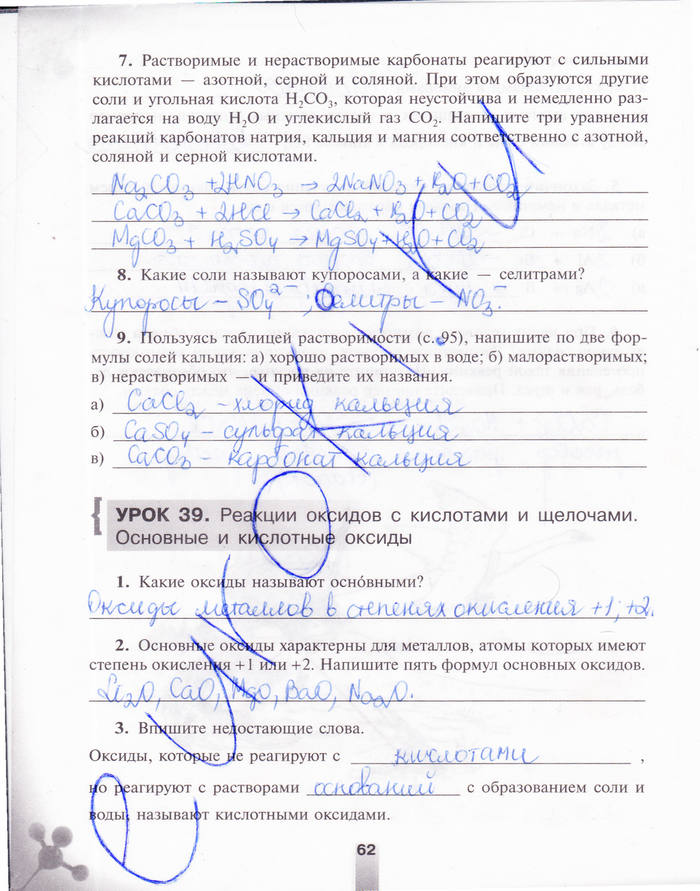 7. Растворимые и нерастворимые карбонаты реагируют с сильными
кислотами — азотной, серной и соляной. При этом образуются другие
соли и угольная кислота H₂CO₃, которая неустойчива и немедленно раз-
лагается на воду H₂O и углекислый газ CO₂. Напишите три уравнения
реакций карбонатов натрия, кальция и магния соответственно с азотной,
соляной и серной кислотами.
Na₂CO₃ + 2HNO₃ → 2NaNO₃ + H₂O + CO₂
CaCO₃ + 2HCl → CaCl₂ + H₂O + CO₂
MgCO₃ + H₂SO₄ → MgSO₄ + H₂O + CO₂
8. Какие соли называют купоросами, а какие — селитрами?
Купоросы – SO₄²⁻; Селитры – NO₃⁻.
9. Пользуясь таблицей растворимости (с. 95), напишите по две фор-
мулы солей кальция: а) хорошо растворимых в воде; б) малорастворимых;
в) нерастворимых — и приведите их названия.
а) CaCl₂ – хлорид кальция
б) CaSO₄ – сульфат кальция
в) CaCO₃ – карбонат кальция
УРОК 39. Реакции оксидов с кислотами и щелочами.
Основные и кислотные оксиды
1. Какие оксиды называют оснóвными?
Оксиды металлов в степенях окисления +1; +2.
2. Основные оксиды характерны для металлов, атомы которых имеют
степень окисления +1 или +2. Напишите пять формул основных оксидов.
Li₂O, CaO, MgO, BaO, Na₂O.
3. Впишите недостающие слова.
Оксиды, которые не реагируют с кислотами ,
но реагируют с растворами оснований с образованием соли и
воды, называют кислотными оксидами.
62